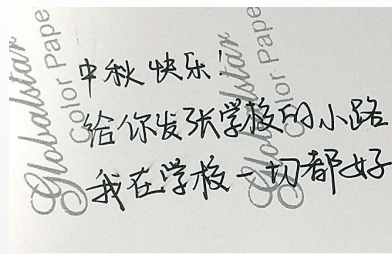 Globalstar
Color Pape
Globalstar
Color Pape
中秋快乐!
给你发张学校的小路
我在学校一切都好